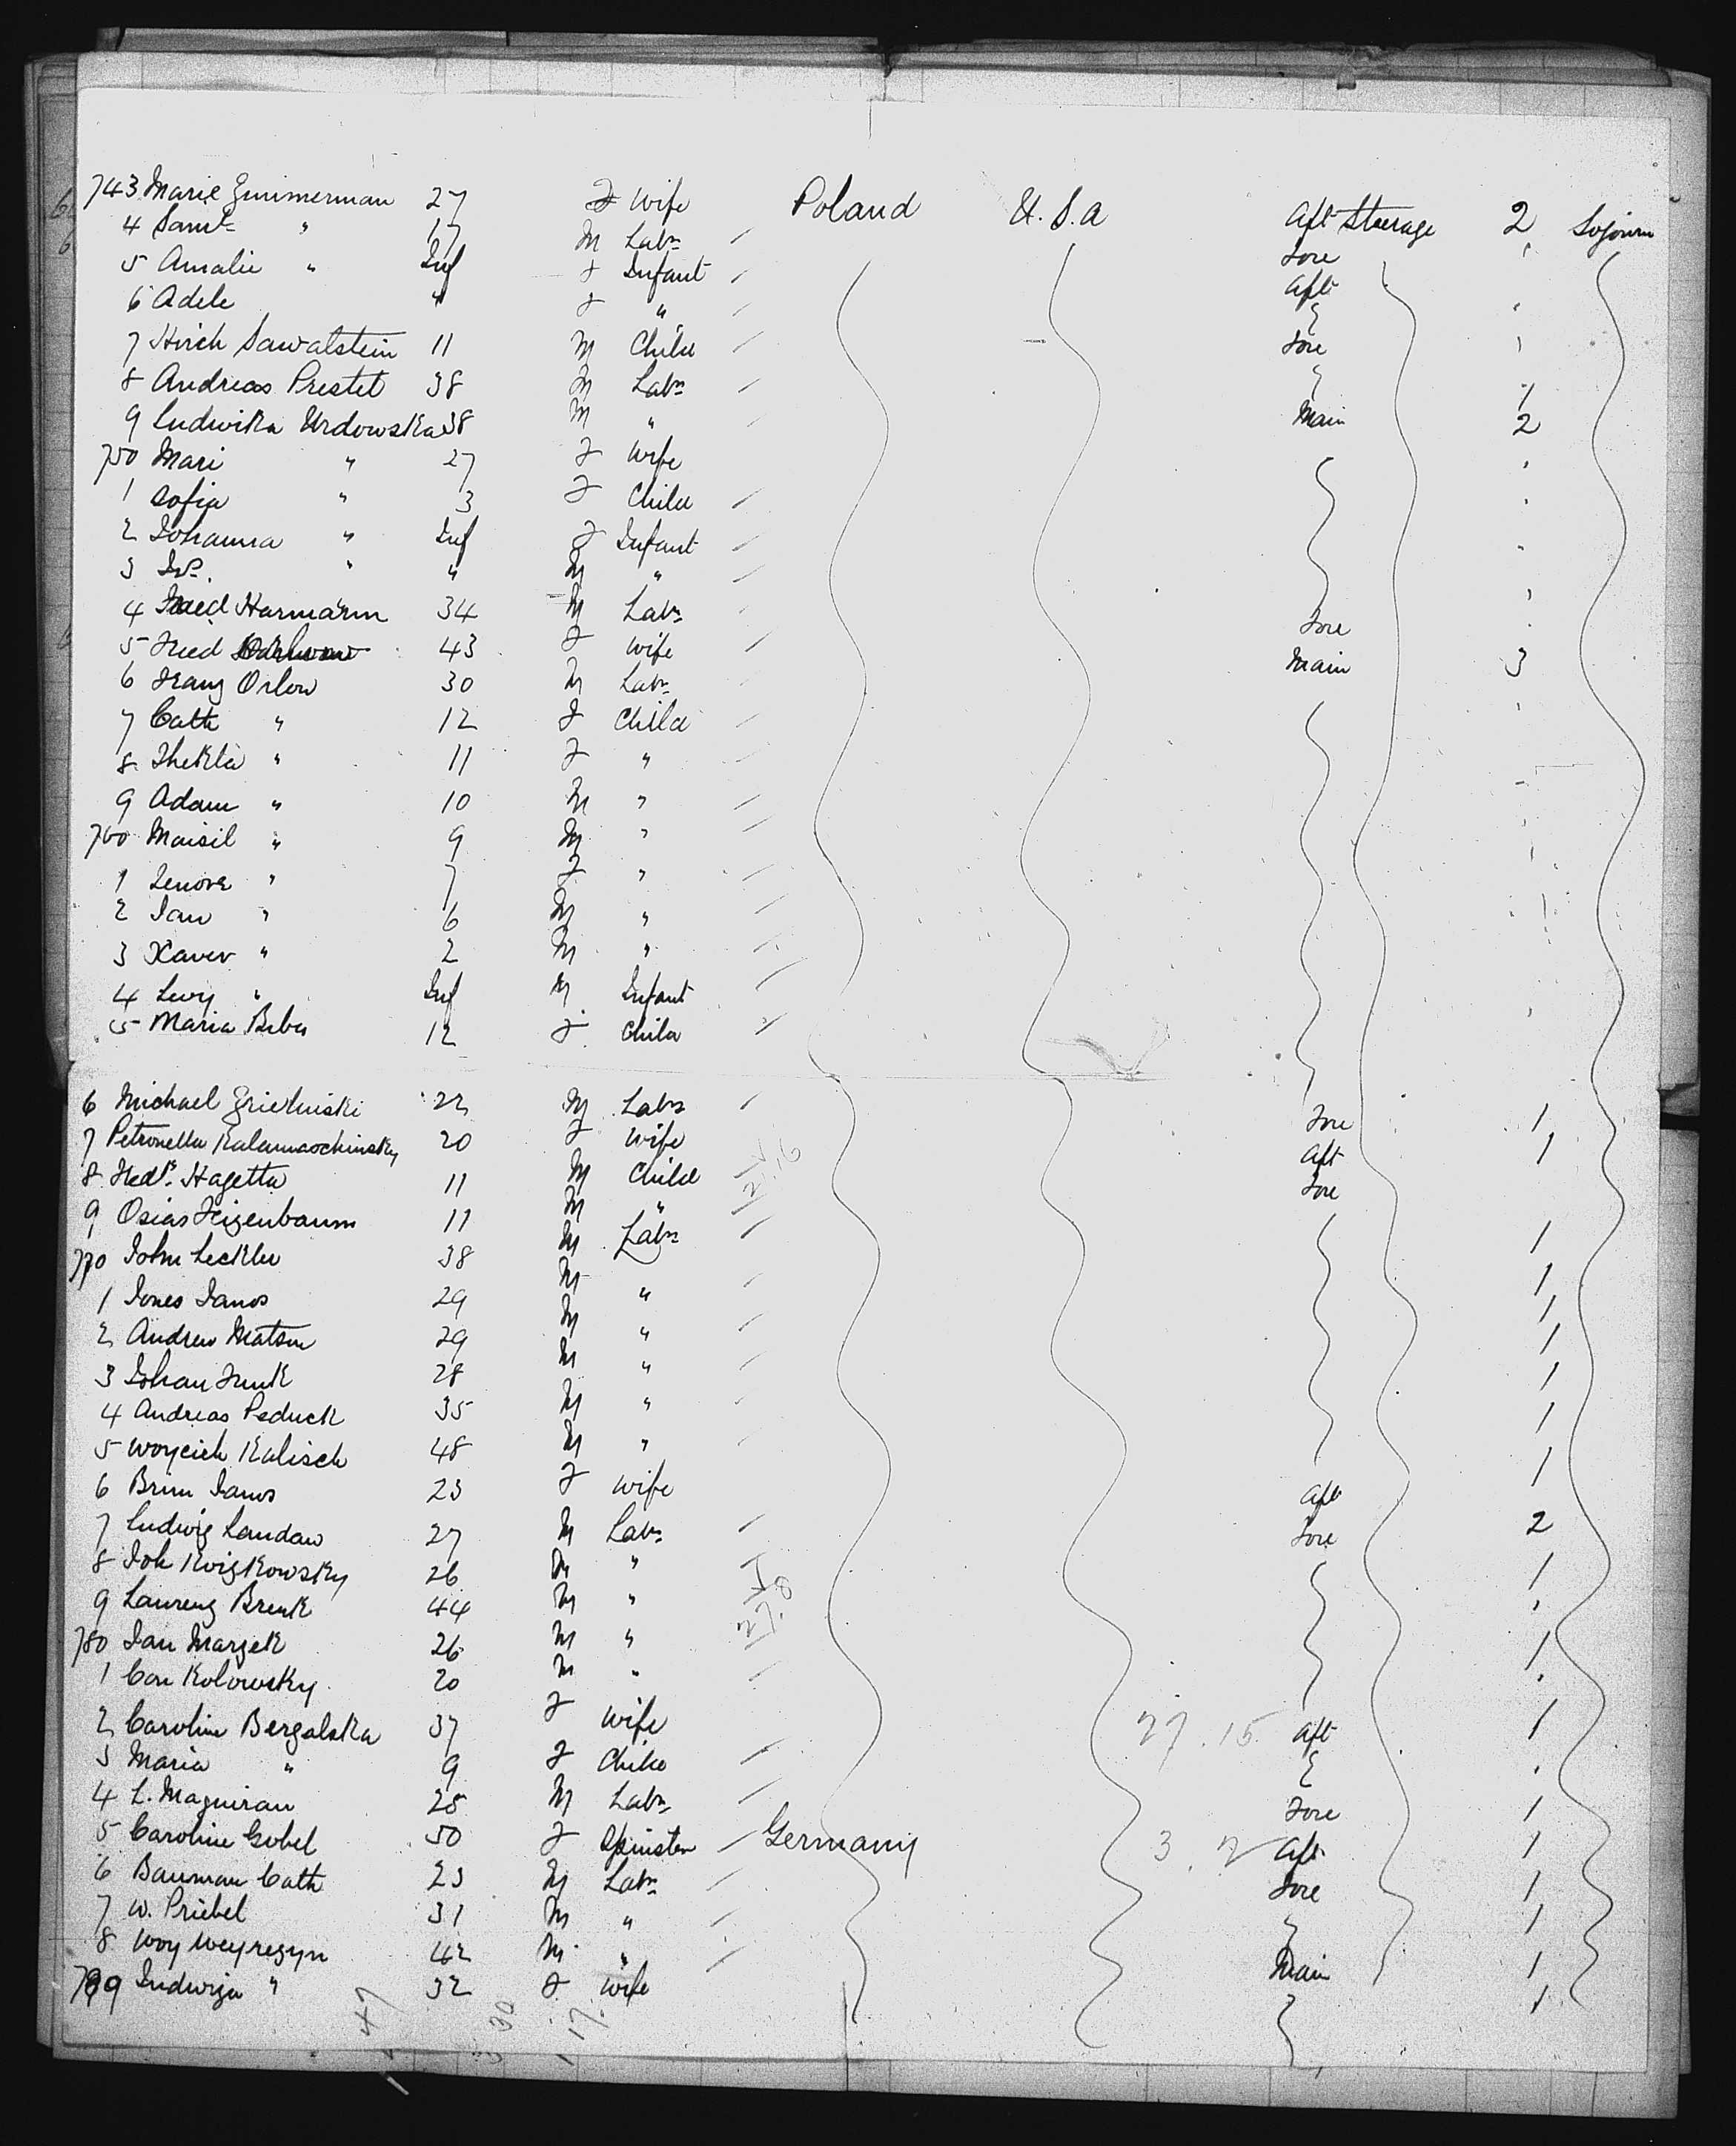 743 Marie Zimmerman 27 F Wife Poland U.S.A Aft Steerage 2 Sojourn
4 Saml " 17 M Labr Fore
5 Amalie " Inf F Infant Aft
6 Adele " F "
7 Hirch Sawalstein 11 M Child Fore 1
8 Andreas Prestet 38 M Labr 1
9 Ludwika Urdowska 38 M " Main 2
750 Mari " 27 F Wife
1 Sofia " 3 F Child
2 Johanna " Inf F Infant
3 " " M "
4 Harmann 34 M Labr Fore
5 Fried 43 F Wife Main 3
6 Franz Orlow 30 M Labr
7 Cath " 12 F Child
8 Thekla " 11 F "
9 Adam " 10 M "
760 Maisil " 9 M "
1 Lenore " 7 F "
2 Jan " 6 M "
3 Xaver " 2 M "
4 Levy " Inf M Infant
5 Maria Biba 12 F Child
6 Michael 22 M Labr Fore 1
7 Petronella 20 F Wife Aft 1
8 Fredk Hagetta 11 M Child Fore
9 Osias Feigenbaum 11 M " 1
770 John Leckler 38 M Labr 1
1 Jones Janos 29 M " 1
2 Andrew Matson 29 M " 1
3 Johan Funk 28 M " 1
4 Andreas Peduck 35 M " 1
5 Woyciech Kalisch 48 M " 1
6 Brim Janos 23 F Wife Aft
7 Ludwig Landaw 27 M Labr Fore 2
8 Joh Kwizkowsky 26 M " 1
9 Laurenz Brenk 44 M " 1
780 Jan Marzek 26 M " 1
1 Con Kolowsky 20 M "
2 Caroline Bergalska 37 F Wife 27.15 Aft 1
3 Maria " 9 F Child
4 L. Magniran 28 M Labr Fore 1
5 Caroline Gobel 50 F Spinster Germany 3.2 Aft 1
6 Bauman Cath 23 M Labr Fore 1
7 W. Priebel 31 M " 1
8 Woy Weyregyn 42 M " Main 1
789 Ludwiga " 32 F Wife 1
47 30 17